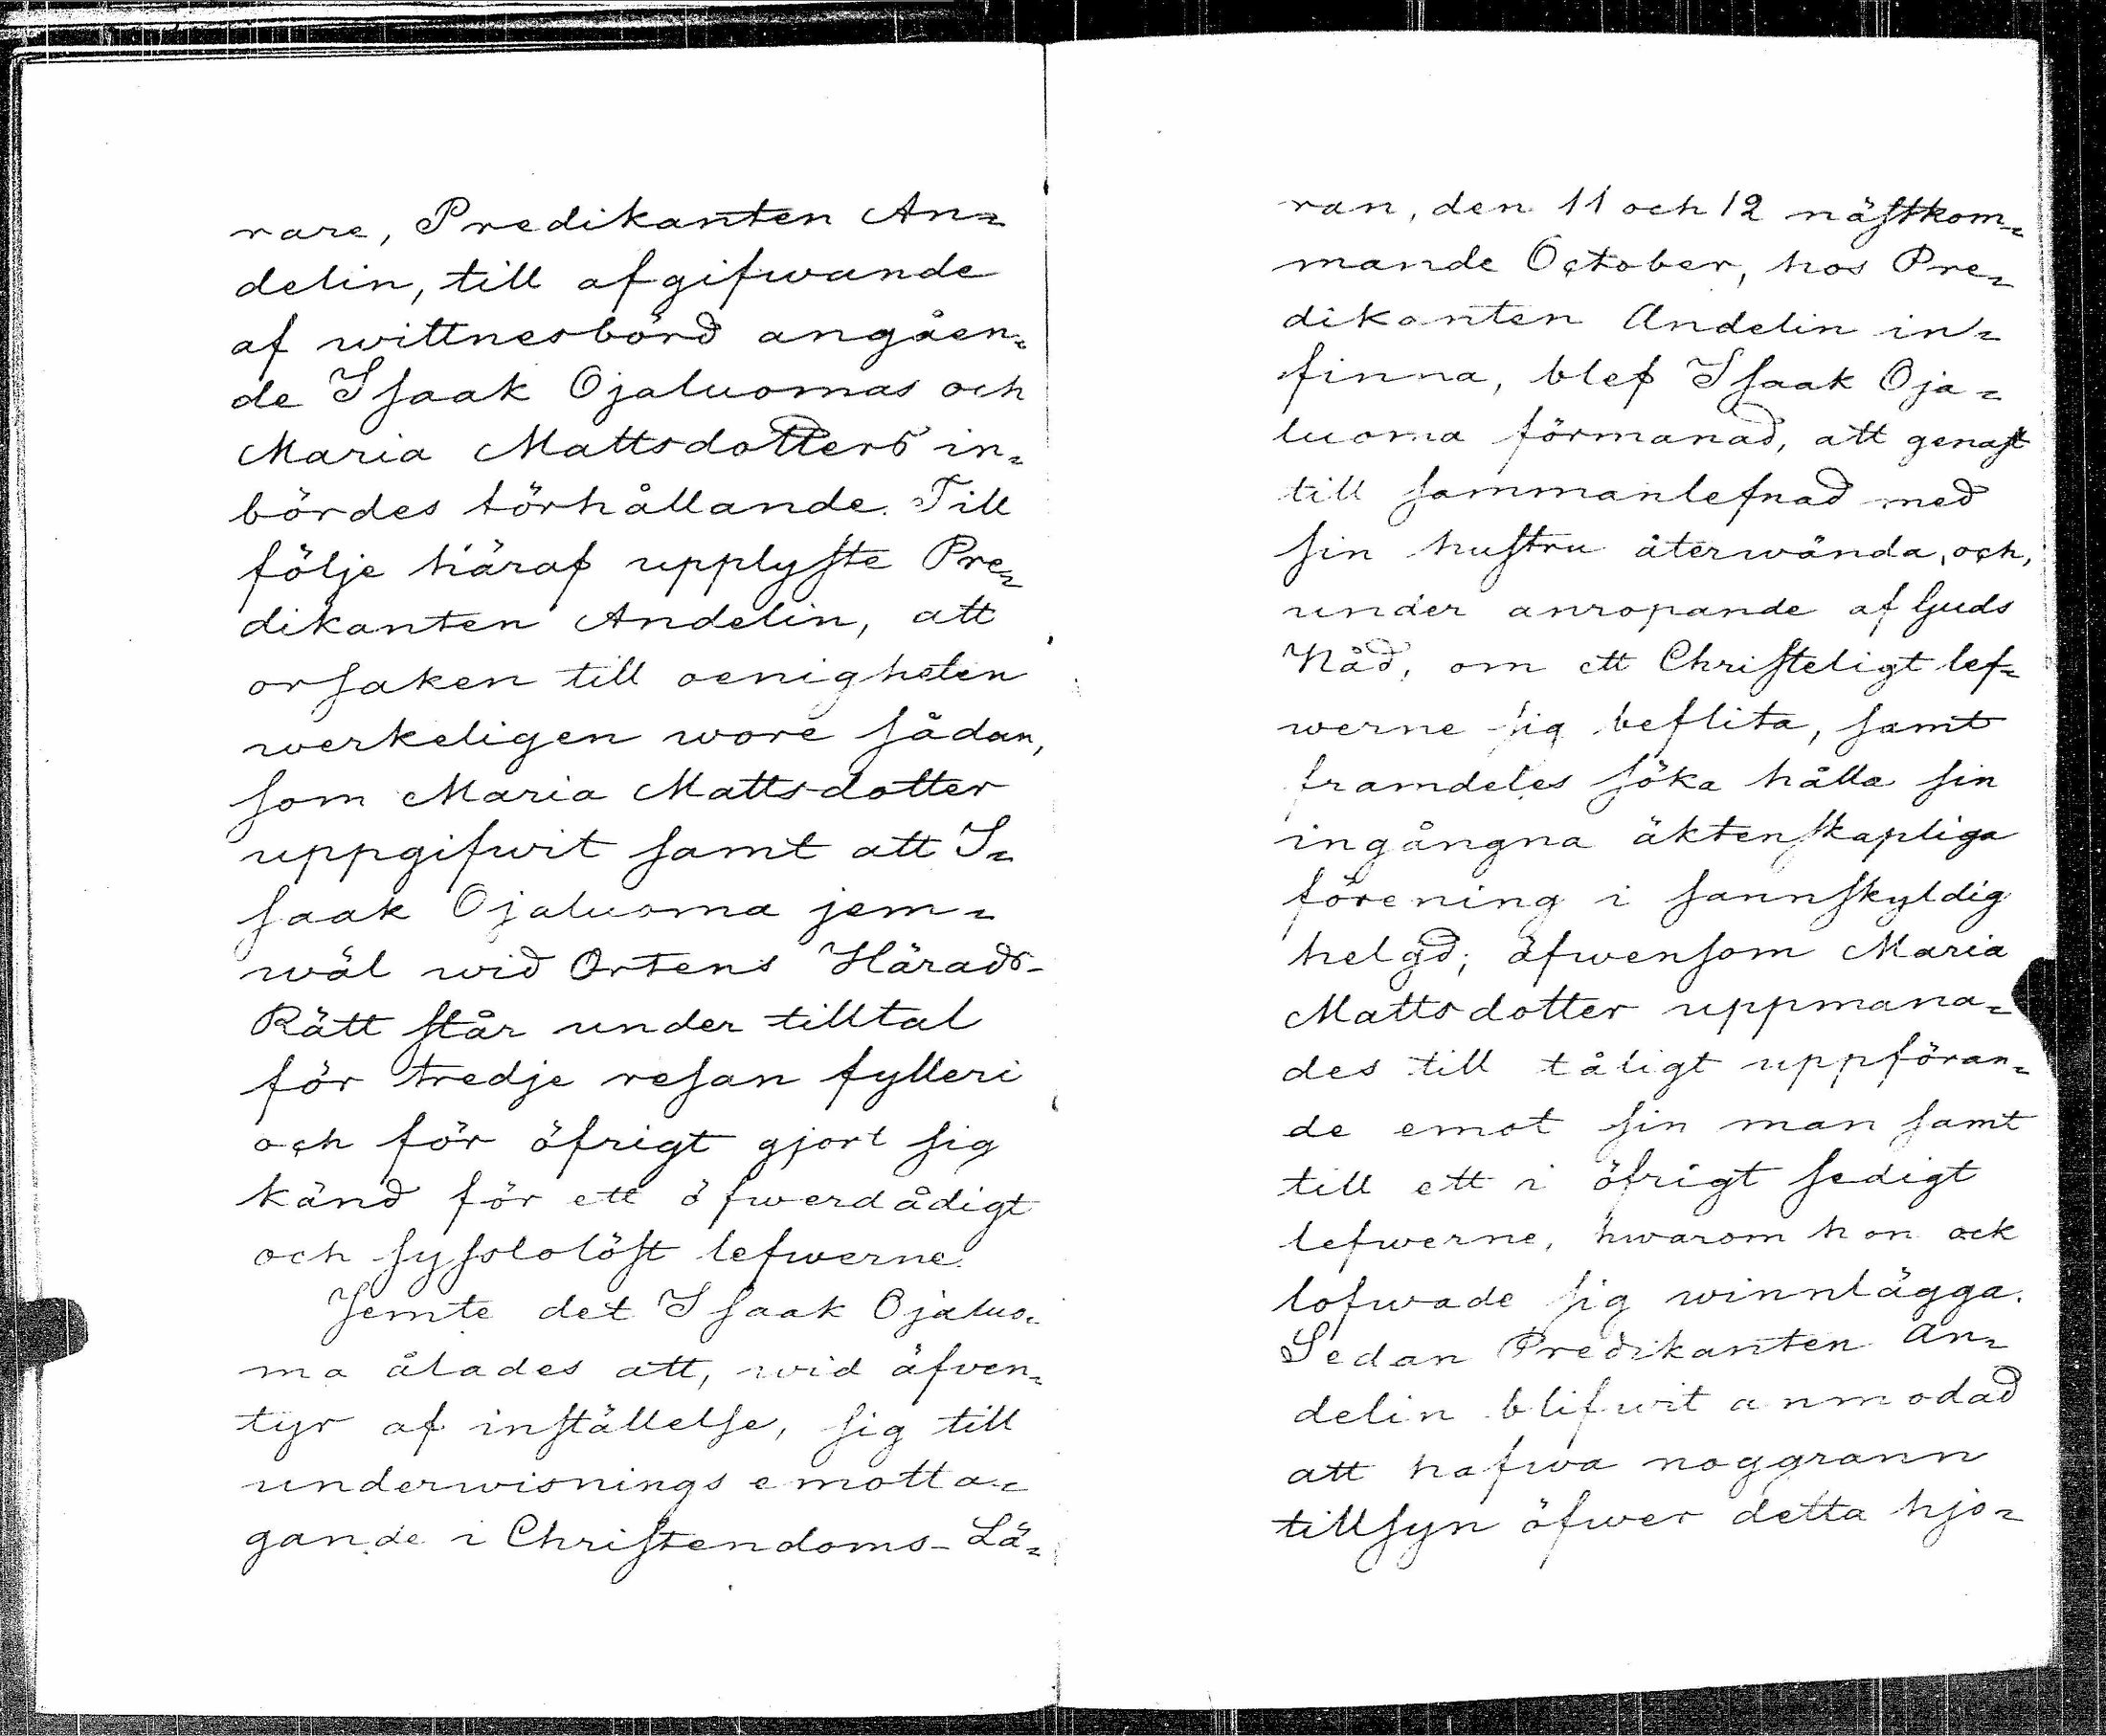 rare, Predikanten An=
delin, till afgifwande
af wittnesbörd angåen=
de Isaak Ojaluomas och
Maria Mattsdotters in=
bördes förhållande. Till
följe häraf upplyste Pre=
dikanten Andelin, att
orsaken till oenigheten
werkeligen wore sådan,
som Maria Mattsdotter
uppgifwit samt att I=
saak Ojaluoma jem=
wäl wid Ortens Härads-
Rätt står under tilltal
för tredje resan fylleri
och för öfrigt gjort sig
känd för ett öfwerdådigt
och syslolöst lefwerne.
Jemte det Isaak Ojaluo=
ma ålades att, wid äfven=
tyr af inställelse, sig till
underwisnings emotta=
gande i Christendoms-Lä=
ran, den 11 och 12 nästkom=
mande October, hos Pre=
dikanten Andelin in=
finna, blef Isaak Oja=
luoma förmanad, att genast
till sammanlefnad med
sin hustru återwända, och,
under anropande af Guds
Nåd, om ett Christeligt lef=
werne sig beflita, samt
framdeles söka hålla sin
ingångna äktenskapliga
förening i sannskyldig
helgd; äfwensom Maria
Mattsdotter uppmana=
des till tåligt uppföran=
de emot sin man samt
till ett i öfrigt sedigt
lefwerne, hwarom hon ock
lofwade sig winnlägga.
Sedan Predikanten An=
delin blifwit anmodad
att hafwa noggrann
tillsyn öfwer detta hjo=